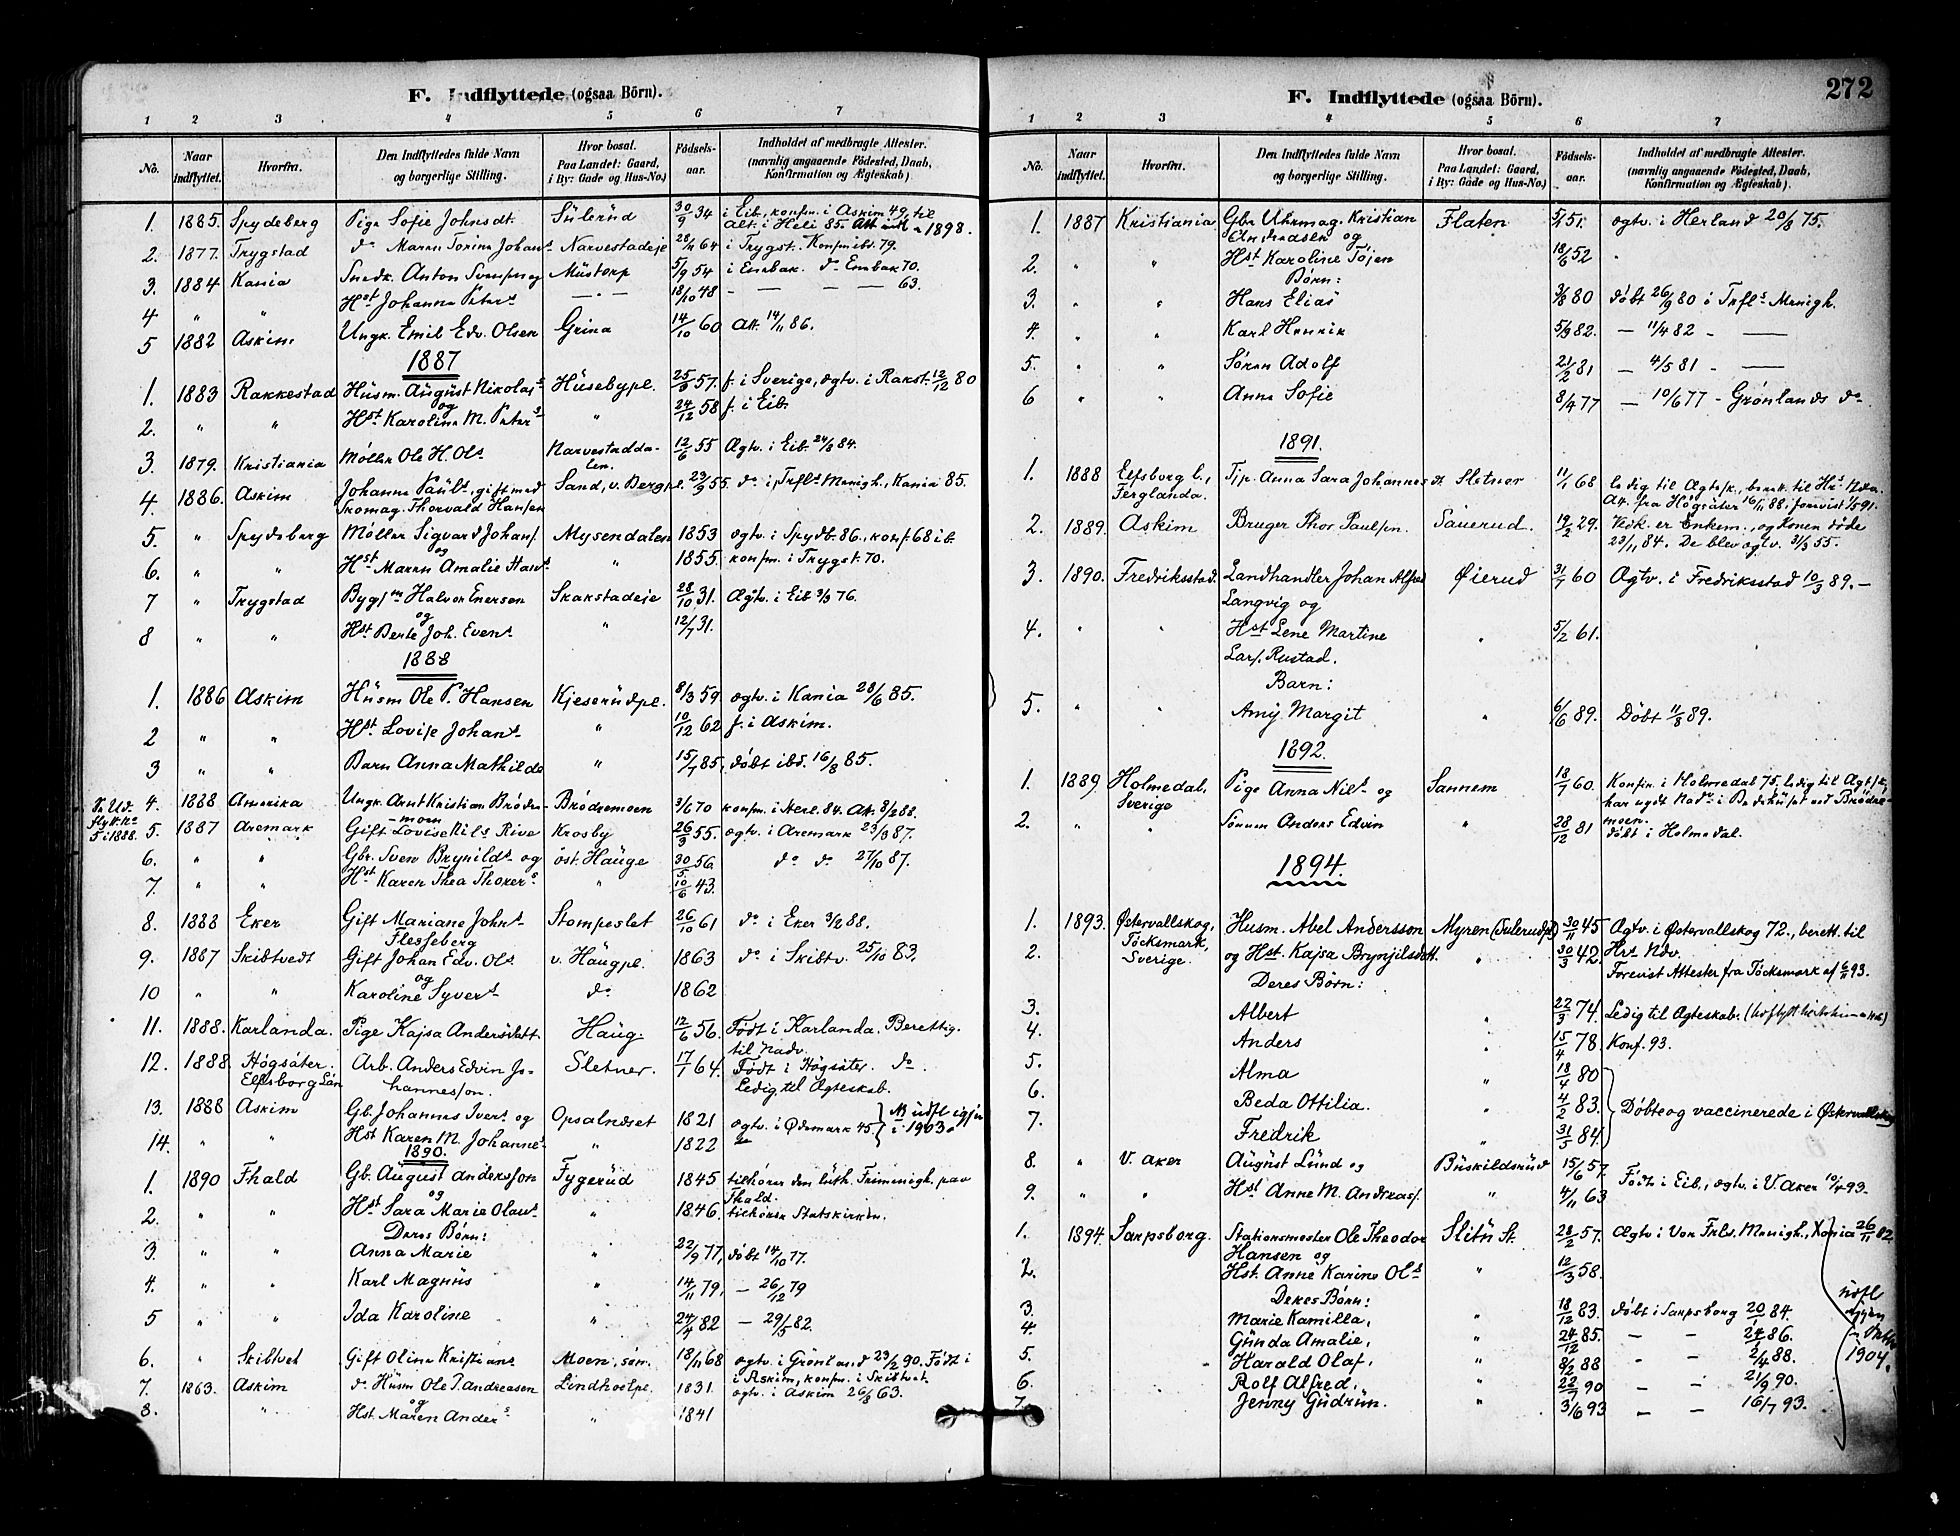 F. Indflyttede (ogsaa Börn).
1 2 3 4 5 6 7
No. Naar indflyttet. Hvorfra. Den Indflyttedes fulde Navn og borgerlige Stilling. Hvor bosat. Paa Landet: Gaard, i By: Gade og Hus-No.) Födsels-aar. Indholdet af medbragte Attester. (navnlig angaaende Födested, Daab, Konfirmation og Ægteskab).
1. 1885. Spydeberg Pige Sofie Johnsdt. Sülerüd 30/9 34 i Eib., konfm. i Askim 49, til
2. 1877. Trygstad do Maren Sorine Johans Narvestadeie 28/11 64 i Trygst. Konfm ibt. 79.
3. 1884 Kania Snedk. Anton Svensen og Müstorp 5/9 54 i Enebak. do Enebak 70.
4 " " Hst Johanne Peters — " — 18/10 48 — — — — 63.
5 1882 Askim Ungk. Emil Edv. Olsen Grina 14/10 60 Att. 14/11 86.
1887
1. 1883 Rakkestad Hüsm. Aügüst Nikolais Hüsebypl. 25/3 57. f. i Sverige, ægtv. i Rakst. 12/12 80
og
2. " " Hst Karoline M. Peters " 24/12 58 f. i Eib.
3. 1879. Kristiania Møller Ole H. Ols Narvestaddalen. 12/6 55 Ægtv. i Eib. 24/3 84.
4. 1886. Askim Johanne Paüls, gift med Sand, v. Bergpl. 23/9 55 do i Trefls Menigh, Kania 85.
Skomag. Thorvald Hansen
5. " Spydeberg Møller Sigvard Johans. Mysendalen 1853 ægtv. i Spydb. 86., konf. 68 ib.
og
6. " " Hst Maren Amalie Hans " 1855. konfm. i Trygst. 70.
7 " Trygstad Bygsm Halvor Enersen Skakstadeie 28/10 31. Ægtv. i Eib 3/3 76.
og
8 " " Hst Berte Joh. Evens " 12/7 31.
1888
1. 1886 Askim Hüsm Ole P. Hansen Kjeserüdpl. 8/3 59 ægtv. i Kania 28/6 85.
2 " " Hst Lovise Johans " 10/12 62 f. i Askim.
3 " " Barn Anna Mathilde " 15/7 85, døbt ibd. 16/8 85.
4. 1888 Amerika Ungk. Arnt Kristian Brøde- Brødremoen 3/6 70 konfm. i Herl. 84. Att. 8/2 88.
5. 1887 Aremark Gift Lovise Nils Rive Krosby 26/3 55. ægtv. i Aremark 23/3 87.
6. " " Gbr. Sven Brynilds og øst. Haüge 30/5 56. do do 27/10 87.
7. " " Hst Karen Thea Thorers " 10/6 43.
8. 1888 Eker Gift Mariane Johns Stompeslet 26/10 61 do i Eker 3/2 88.
Flesseberg
9. 1887 Skibtvedt Gift Johan Edv. Ols v. Haügpl. 1863 do i Skibtv. 25/10 83.
og
10 " " Karoline Syvers do 1862
11. 1888. Karlanda. Pige Kajsa Andersdatt Haüg 12/6 56. Født i Karlanda. Berettig.
til Nadv.
12. 1888. Högsäter. Arb. Anders Edvin Jo- Sletner. 17/1 64. Født i Högsäter. do
Elfsborg Län hannesson. Ledig til Ægteskab.
13. 1888 Askim Gb. Johannes Ivers og Opsalndset 1821 ægtv. i Ødemark 45 NB udfl igjen i 1903.
14. " " Hst Karen M. Johannes " 1822
1890.
1. 1890 Fhald Gb. Aügüst Andersson Fygerüd 1845 tilhører den luth. Frimenigh. paa
og Fhald.
2. " " Hst Sara Marie Olaus " 1846. tilhører Statskirken.
Deres Børn:
3. " " Anna Marie " 22/9 77, døbt 14/10 77.
4. " " Karl Magnüs " 14/11 79, — 26/12 79
5 " " Ida Karoline " 24/4 82 — 29/5 82.
6. " Skibtvet Gift Olina Kristians Moen, søn. 18/11 68 ægtv. i Grønland 23/2 90. Født i
i Askim, konfm. i Skibtvet.
7. 1863. Askim do Hüsm Ole P. Andreasen Lindhoelpl. 1831. ægtv. i Askim 26/8 63.
og
8. " Hst. Maren Anders " 1841
F. Indflyttede (ogsaa Börn).
272
1 2 3 4 5 6 7
No. Naar indflyttet. Hvorfra. Den Indflyttedes fulde Navn og borgerlige Stilling. Hvor bosat. Paa Landet: Gaard, i By: Gade og Hus-No.) Födsels-aar. Indholdet af medbragte Attester. (navnlig angaaende Födested, Daab, Konfirmation og Ægteskab).
1. 1887 Kristiania Gbr. Uhrmag. Kristian Flaten 5/1 51. ægtv. i Herland 20/8 75.
Andreasen og
2. " " Hst Karoline Tøjen 18/6 52
Børn:
3. " " Hans Elias 3/8 80 døbt 26/9 80 i Trefls Menigh.
4. " " Karl Henrik 5/9 82. — 11/4 82 — —
5. " " Søren Adolf 21/2 81 — 4/5 81 — —
6 " " Anna Sofie 8/4 77 — 10/6 77 — Grønlands do
1891.
1. 1888 Elfsborg l., Tjp. Anna Sara Johannesd. Sletner 11/1 68 ledig til Ægtesk., beret. til Hrs Ndv.
Ferglanda. Att. fra Högsäter 16/11 88, forevist 1/5 91.
2. 1889. Askim Bruger Thor Paulsen. Sauerud. 19/2 29. Vedk. er Enkem., og Konen døde
23/11 84. De blev ægtv. 31/3 55.
3. 1890. Fredriksstad. Landhandler Johan Alfred Øierud 31/7 60 Ægtv. i Fredriksstad 10/3 89. —
Langvig og
4. " " Hst Lene Martine " 5/2 61.
Lars. Rustad.
Barn:
5. " " Amy Margit " 6/6 89. Døbt 11/8 89.
1892.
1. 1889. Holmedal, Pige Anna Nils og Sannem 18/7 60. Konfm. i Holmedal 75, ledig til Ægtsk,
Sverige har nydt Nadv. i Bedehuset ved Brødre-
moen.
2. " " Sønnen Anders Edvin " 28/12 81 døbt i Holmedal.
1894.
1. 1893. Østervallskog, Husm. Abel Andersson Myren (Sulerudpl) 30/11 45 Ægtv. i Østervallskog 72., berett. til
2. Töcksmark, Sverige. og Hst. Kajsa Brynjilsdatt. " 30/3 42. Hrs Ndv.
Forevist Attester fra Töcksmark af 6/11 93.
Deres Børn:
3. Albert " 22/3 74. Ledig til Ægteskab.
4. Anders " 15/4 78. Konf. 93.
5. Alma 18/4 80
6. Beda Ottilia. " 4/2 83. Døbte og vaccinerede i Østervallskog
7. Fredrik " 31/5 84.
8. " V. Aker Aügüst Lünd og Büskildsrüd 15/6 57. Født i Eib., ægtv. i V. Aker 10/4 93.
9. " " Hst Anne M. Andreass. " 4/11 63
1. 1894. Sarpsborg. Stationsmester Ole Theodor Slitü St. 28/2 57. Ægtv i Vor Frls. Menigh., Kania 26/11 82.
Hansen og
2. Hst. Anne Karine Ols " 12/3 58.
Deres Børn:
3. Marie Kamilla, " 18/12 83. døbt i Sarpsborg 20/1 84.
4. Günda Amalie, " 24/12 85. — — 24/2 86.
5. Harald Olaf, " 8/2 88 — — 2/4 88.
6. Rolf Alfred, " 22/7 90 — — 21/9 90.
7. Jenny Güdrün. " 3/6 93 — — 16/7 93.
udfl igjen 1904.